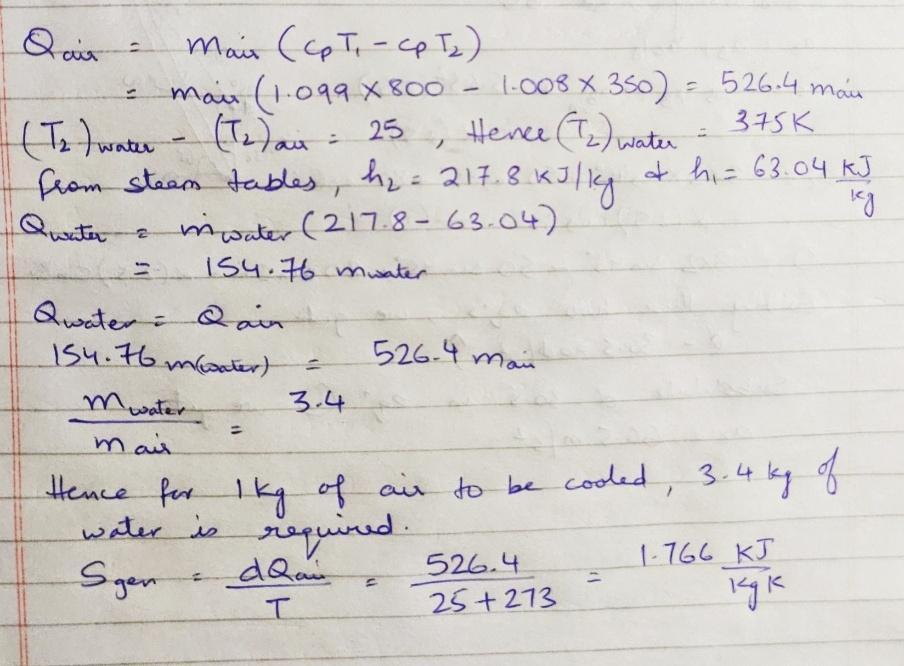 Qair = mair (cpT₁ - cpT₂)
= mair (1.099 X 800 - 1.008 X 350) = 526.4 mair
(T₂)water - (T₂)air = 25 , Hence (T₂)water = 375K
from steam tables, h₂ = 217.8 KJ/kg & h₁ = 63.04 KJ/kg
Qwater = ṁwater (217.8 - 63.04)
= 154.76 mwater
Qwater = Qair
154.76 m(water) = 526.4 mair
mwater/mair = 3.4
Hence for 1kg of air to be cooled, 3.4 kg of
water is required.
Sgen = dQair/T = 526.4/25+273 = 1.766 KJ/KgK